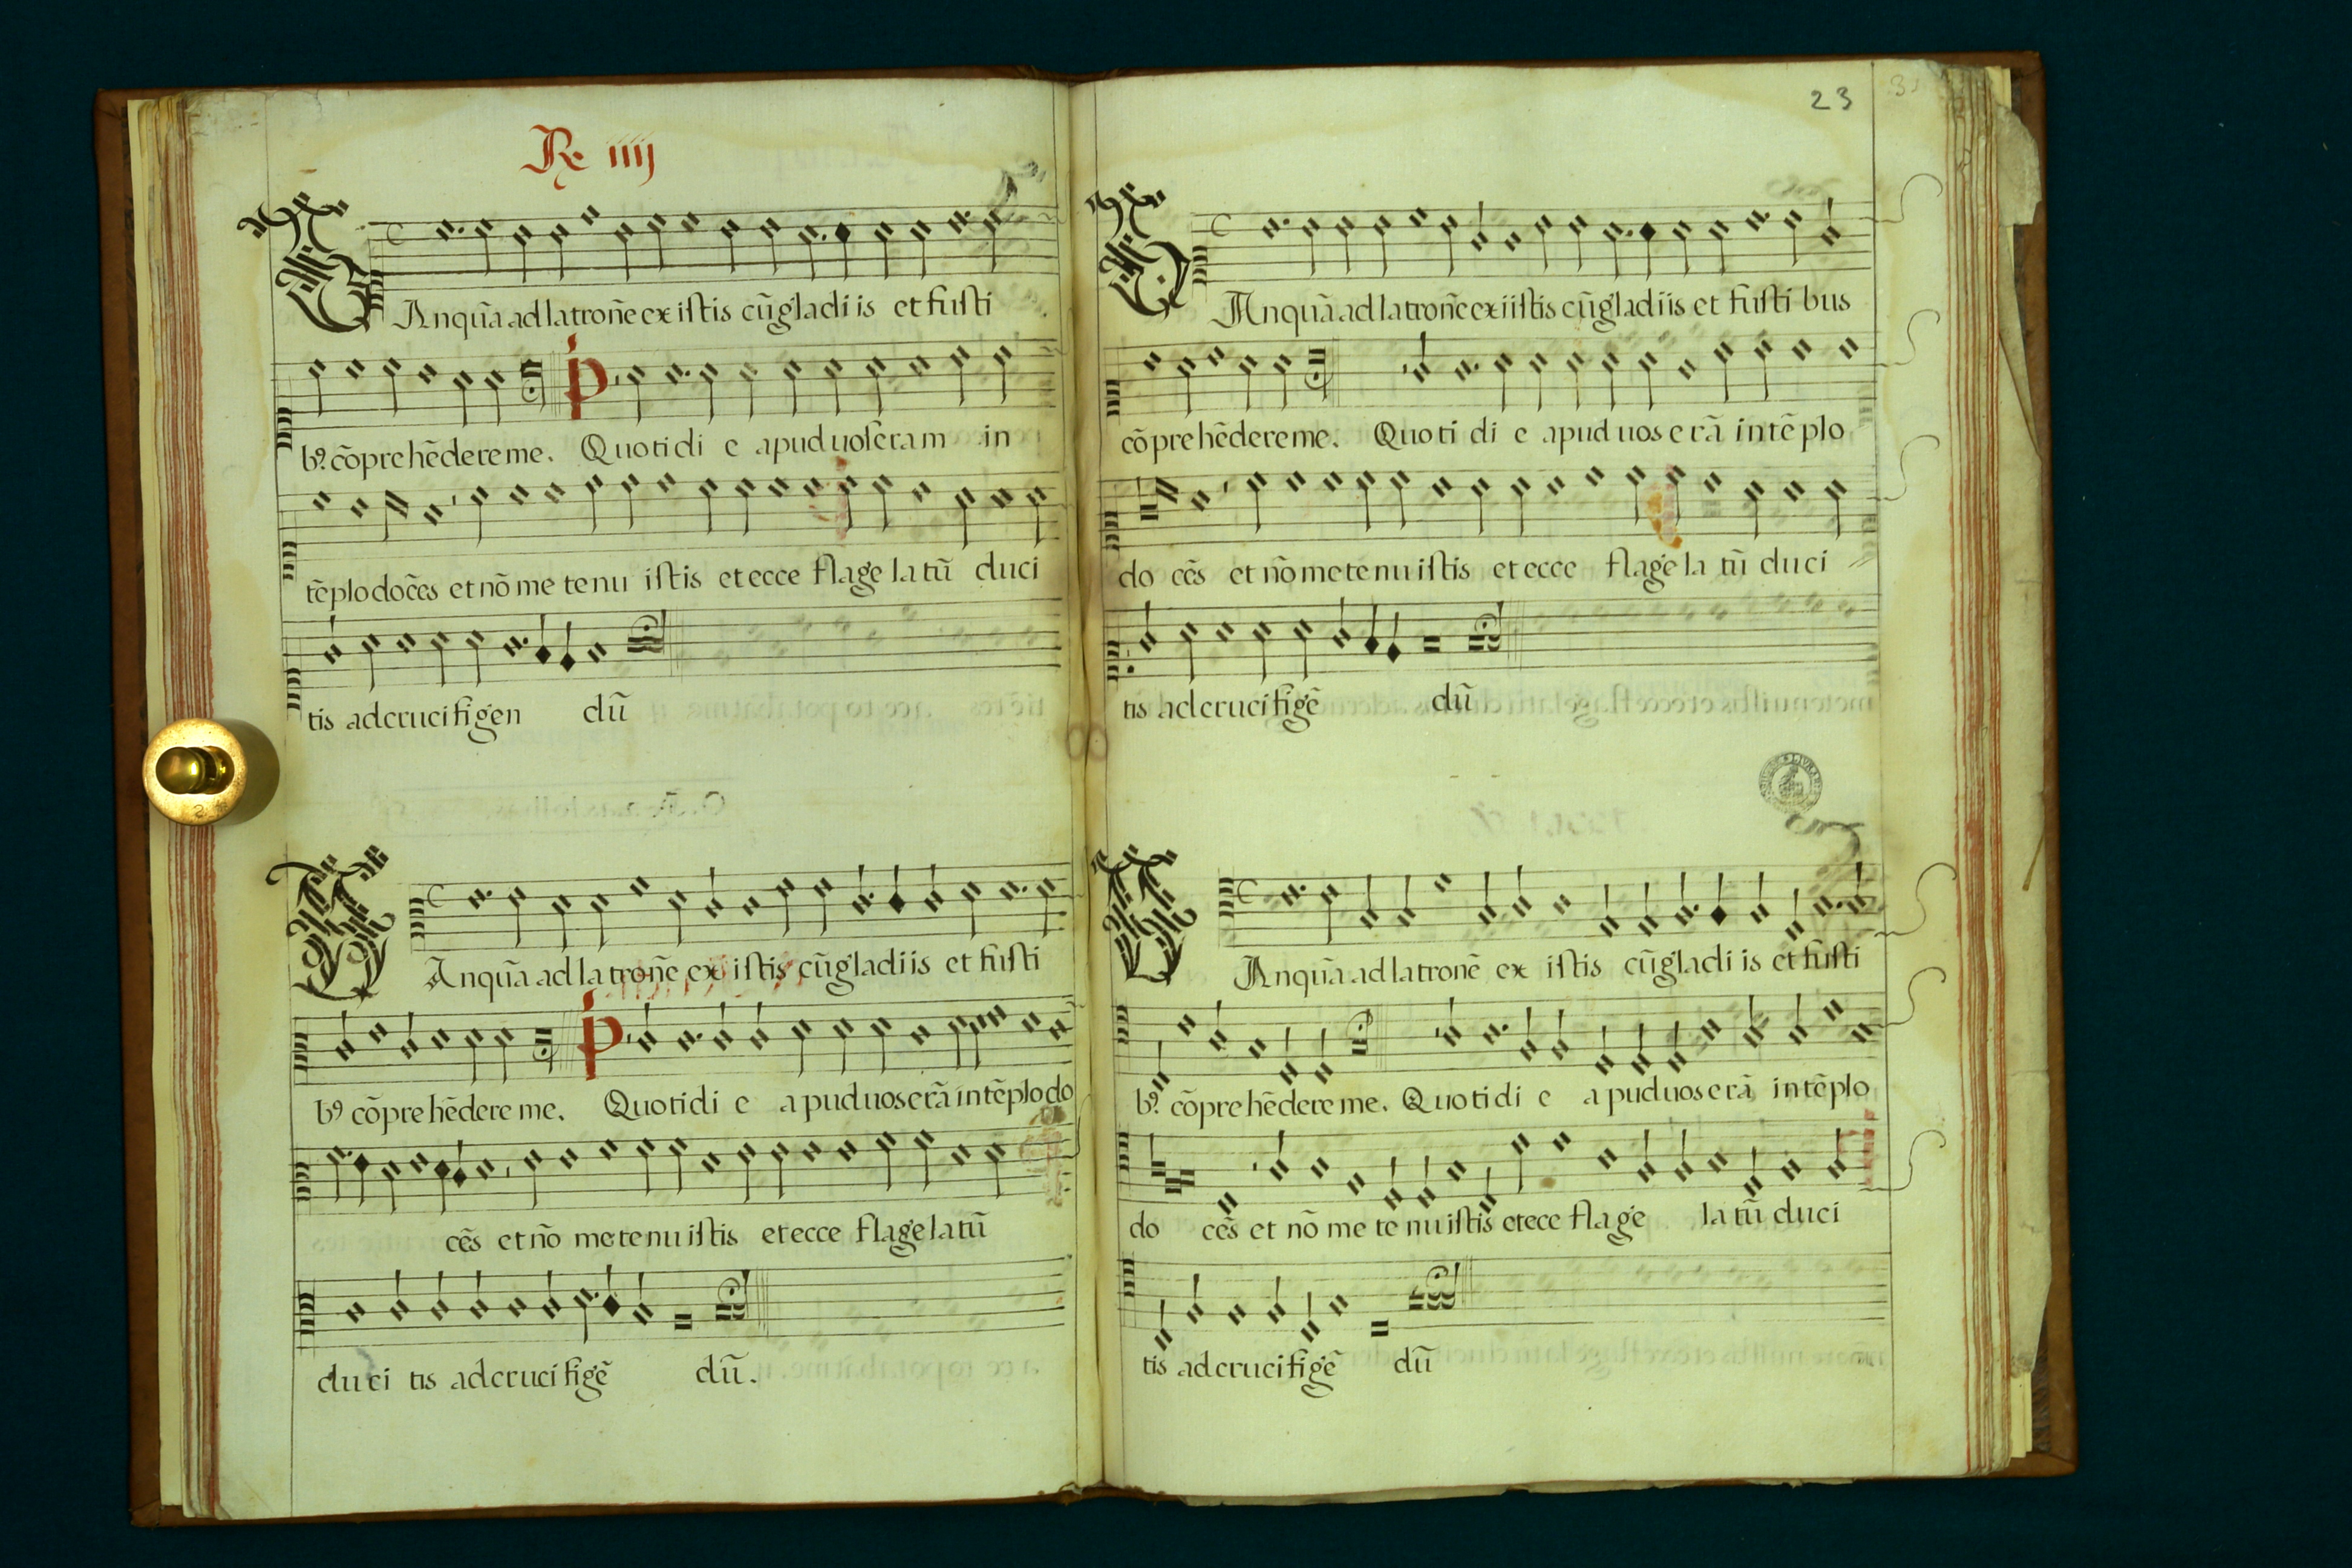 Re iiij
Anquā ad latronē ex istis cū gladiis et fusti
b9. cōprehēdere me. Quotidie apud uos eram in
tēplo docēs et nō me tenuistis et ecce flagelatū duci
tis ad crucifigen dū
Anquā ad latronē ex istis cū gladiis et fusti
b9 cōprehēdere me. Quotidie apud uos erā in tēplo do
cēs et nō me tenuistis et ecce flagelatū
duci tis ad crucifigē dū.
23
Anquā ad latronē exiistis cū gladiis et fustibus
cōprehēdere me. Quotidie apud uos erā in tēplo
do cēs et nō me tenuistis et ecce flagelatū duci
tis ad crucifigē dū
Anquā ad latronē ex istis cū gladiis et fusti
b9. cōprehēdere me. Quotidie apud uos erā in tēplo
do cēs et nō me tenuistis etece flage latū duci
tis ad crucifigē dū